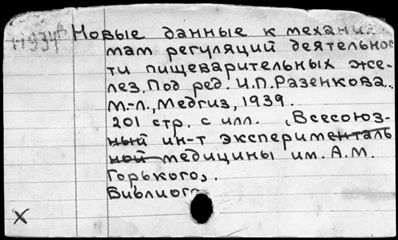 11934
Новые данные к механиз
мам регуляций деятельнос
ти пищеварительных же-
лез. Под ред. И.П. Разенкова.
М.-Л., Медгиз, 1939.
201 стр. с илл. (Всесоюз-
ный ин-т эксперименталь
ной медицины им. А.М.
Горького).
Библиогр
X